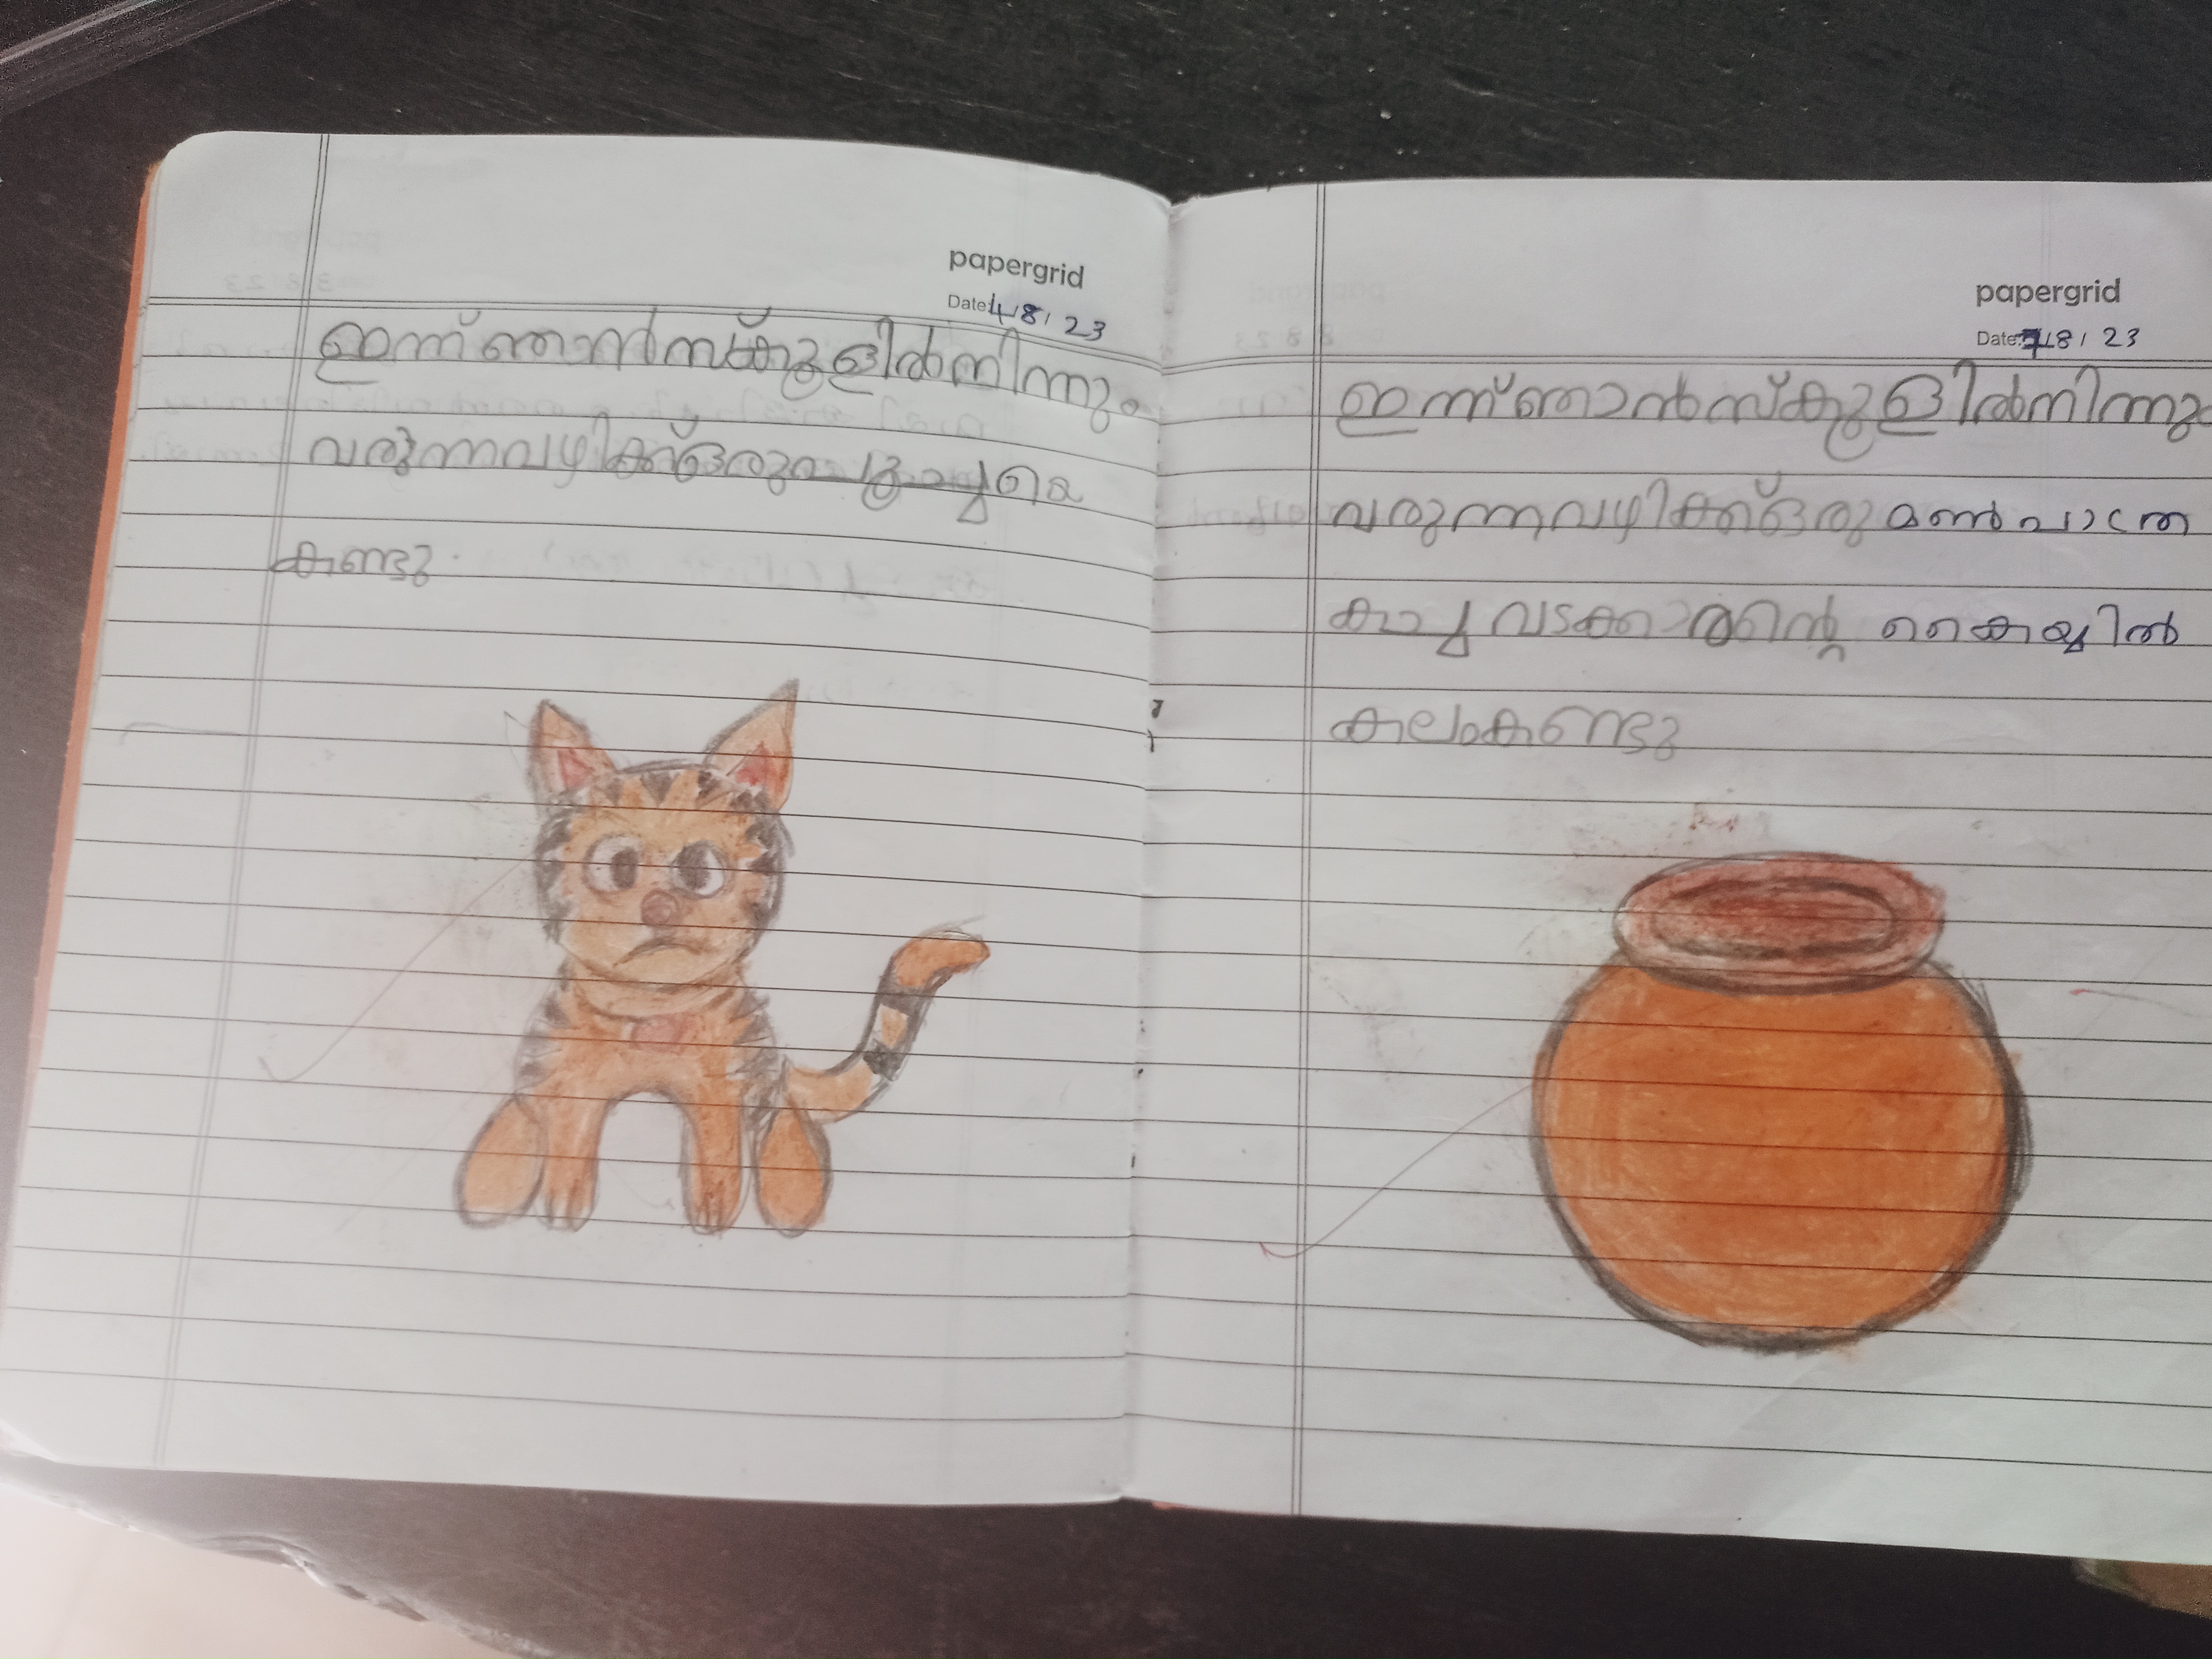 papergrid
Date 4/8/23
ഇന്ന് ഞാൻ സ്കൂളിൽ നിന്നും
വരുന്ന വഴിക്ക് ഒരു പൂച്ചയെ
കണ്ടു.
papergrid
Date: 7/8/23
ഇന്ന് ഞാൻ സ്കൂളിൽ നിന്നും
വരുന്ന വഴിക്ക് ഒരു മൺപാത്ര
കച്ചവടക്കാരന്റെ കൈയ്യിൽ
കലം കണ്ടു